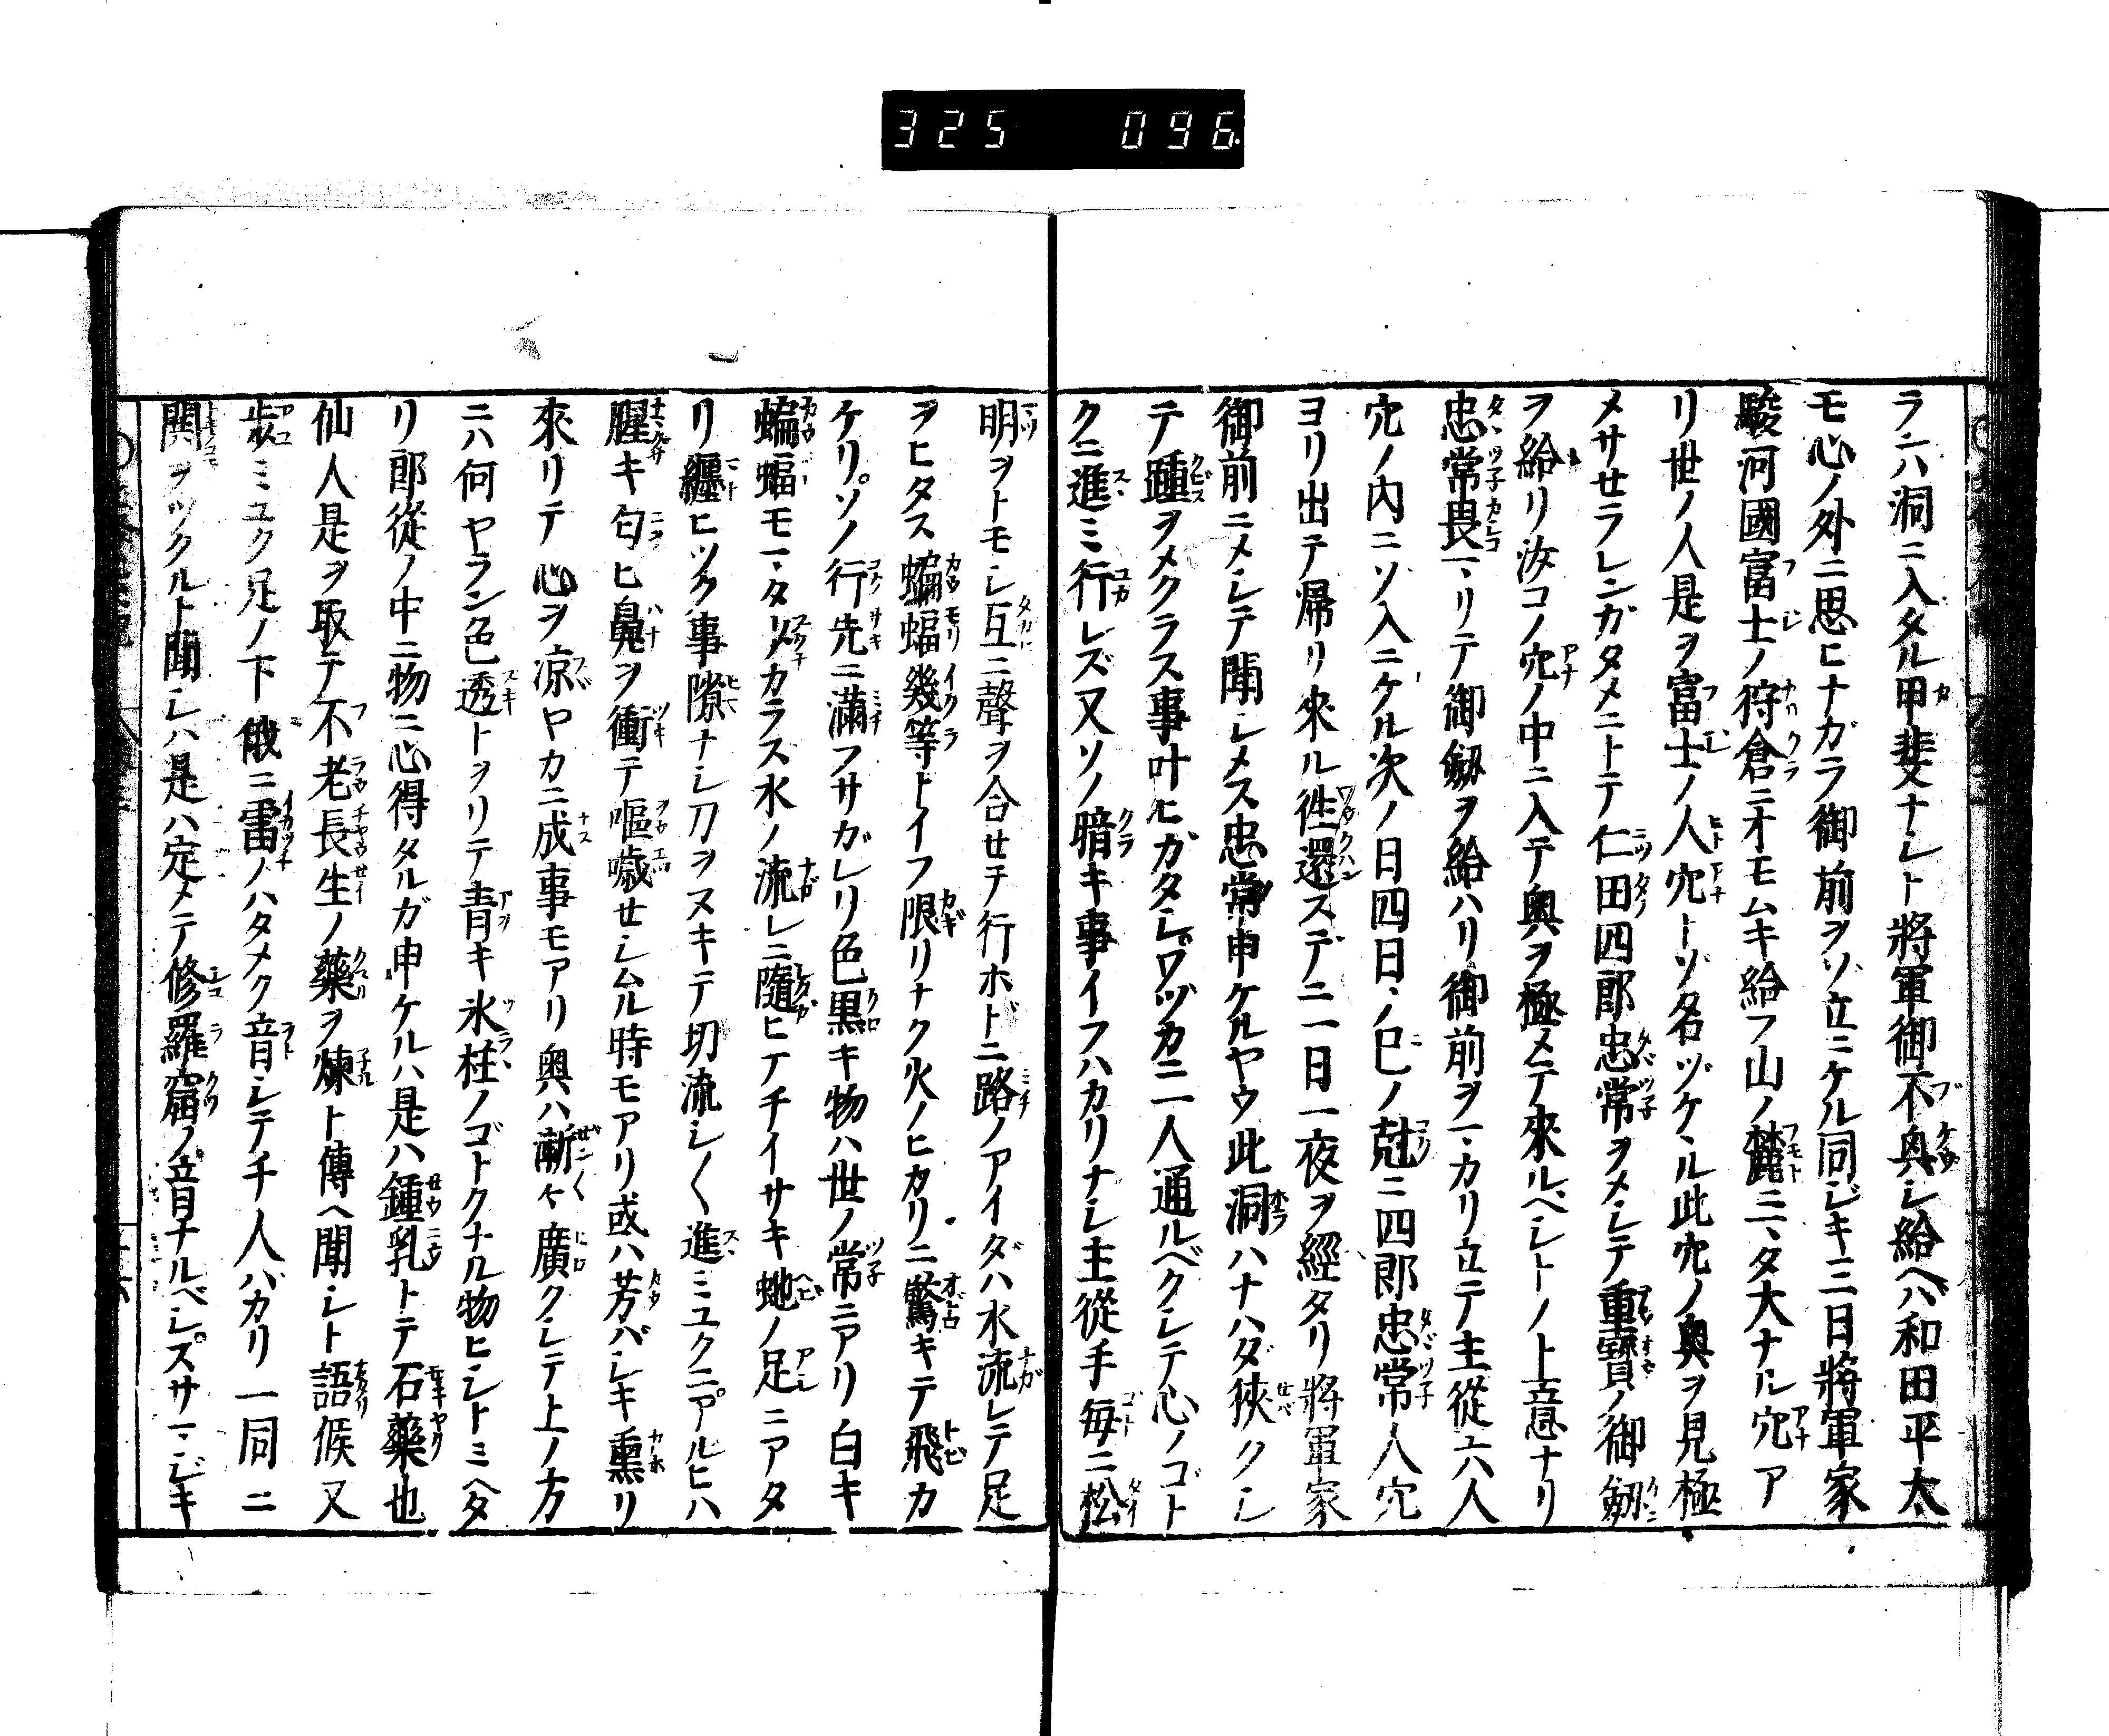 325 096
ラニハ洞ニ入タル甲斐ナシト將軍御不興シ給ヘバ和田平太
モ心ノ外ニ思ヒナガラ御前ヲソ立ニケル同ジキ三日將軍家
駿河國富士ノ狩倉ニオモムキ給フ山ノ麓ニマタ大ナル穴ア
リ世ノ人是ヲ富士ノ人穴トゾ名ヅケヽル此穴ノ奥ヲ見極
メサセラレンガタメニトテ仁田四郎忠常ヲメシテ重寶ノ御劔
ヲ給リ汝コノ穴ノ中ニ入テ奥ヲ極メテ來ルベシトノ上意ナリ
忠常畏マリテ御劔ヲ給ハリ御前ヲマカリ立テ主從六人
穴ノ内ニソ入ニケル次ノ日四日ノ巳ノ尅ニ四郎忠常人穴
ヨリ出テ帰リ來ル徃還スデニ一日一夜ヲ經タリ將軍家
御前ニメシテ聞シメス忠常申ケルヤウ此洞ハナハダ狹クシ
テ踵ヲメクラス事叶ヒガタシワヅカニ一人通ルベクシテ心ノゴト
クニ進ミ行レズ又ソノ暗キ事イフハカリナシ主從手毎ニ松
明ヲトモシ互ニ聲ヲ合セテ行ホドニ路ノアイダハ水流レテ足
ヲヒタス蝙蝠幾等トイフ限リナク火ノヒカリニ驚キテ飛カ
ケリソノ行先ニ滿フサガレリ色黒キ物ハ世ノ常ニアリ白キ
蝙蝠モマタ少カラス水ノ流レニ隨ヒテチイサキ虵ノ足ニアタ
リ纏ヒツク事隙ナシ刀ヲヌキテ切流シ〱進ミユクニアルヒハ
腥キ匂ヒ鼻ヲ衝テ嘔噦セシムル時モアリ或ハ芳バシキ熏リ
來リテ心ヲ凉ヤカニ成事モアリ奥ハ漸々廣クシテ上ノ方
ニハ何ヤラン色透トヲリテ青キ氷柱ノゴトクナル物ヒシトミヘタ
リ郎從ノ中ニ物ニ心得タルガ申ケルハ是ハ鍾乳トテ石藥也
仙人是ヲ取テ不老長生ノ藥ヲ煉ト傳ヘ聞シト語候又
歩ミユク足ノ下俄ニ雷ノハタメク音シテ千人バカリ一同ニ
鬨ヲツクルト聞シハ是ハ定メテ修羅窟ノ音ナルベシスサマジキ